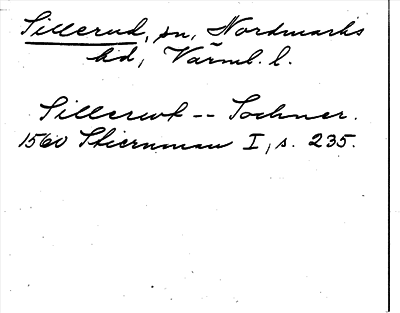 Sillerud, sn, Nordmarks
hd, Värml. l.
Sillerwdh -- Sochner.
1560 Stiernman I, s. 235.